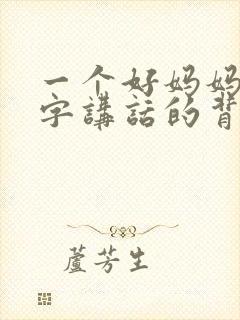 一个好妈妈
字講話的背
蘆芳生